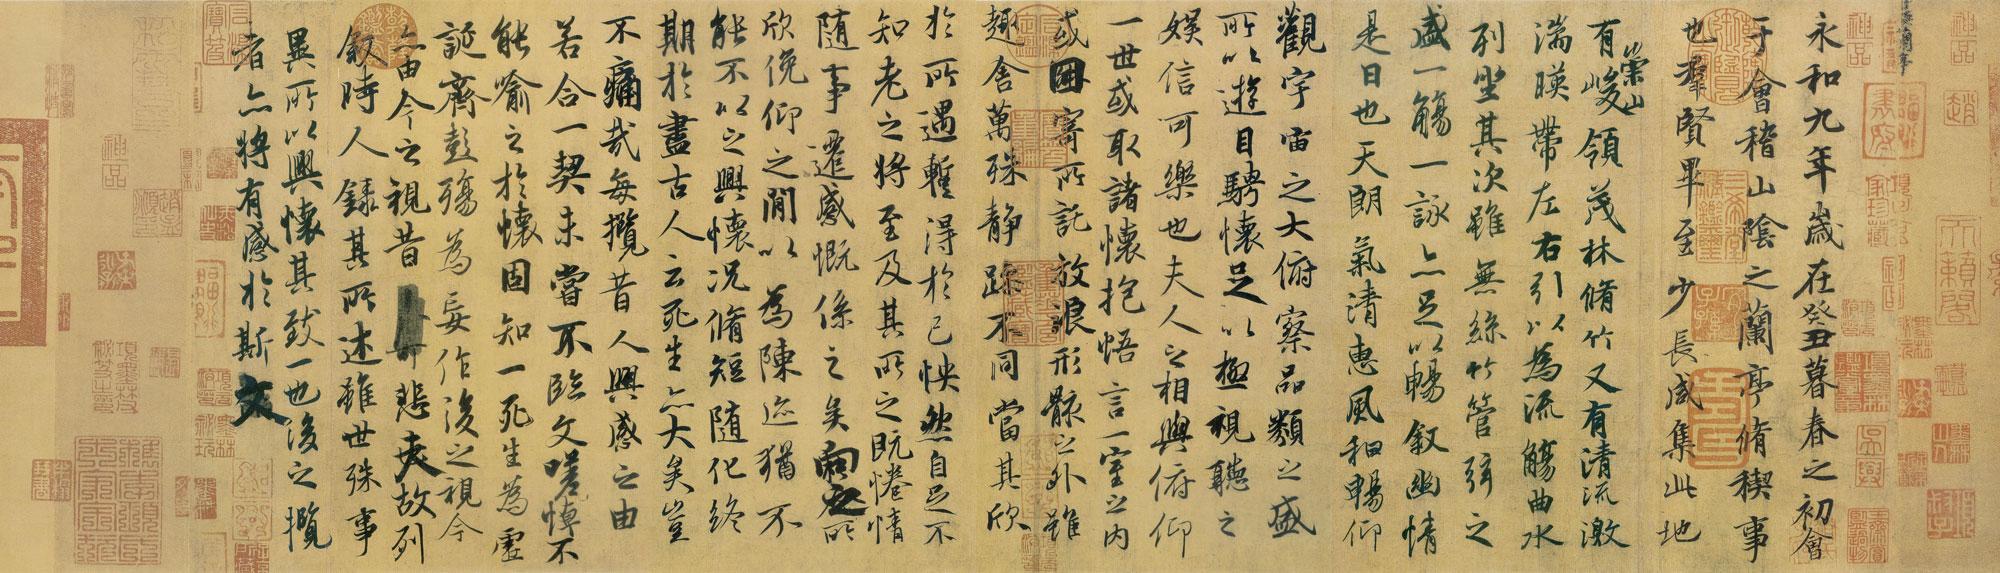 永和九年歲在癸丑暮春之初會
于會稽山陰之蘭亭脩稧事
也羣賢畢至少長咸集此地
有崇山峻領茂林脩竹又有清流激
湍暎帶左右引以為流觴曲水
列坐其次雖無絲竹管弦之
盛一觴一詠亦足以暢敘幽情
是日也天朗氣清惠風和暢仰
觀宇宙之大俯察品類之盛
所以遊目騁懷足以極視聽之
娛信可樂也夫人之相與俯仰
一世或取諸懷抱悟言一室之內
或因寄所託放浪形骸之外雖
趣舍萬殊靜躁不同當其欣
於所遇蹔得於己怏然自足不
知老之將至及其所之既惓情
隨事遷感慨係之矣向之所
欣俛仰之閒以為陳迹猶不
能不以之興懷況脩短隨化終
期於盡古人云死生亦大矣豈
不痛哉每攬昔人興感之由
若合一契未嘗不臨文嗟悼不
能喻之於懷固知一死生為虛
誕齊彭殤為妄作後之視今
亦由今之視昔悲夫故列
敘時人錄其所述雖世殊事
異所以興懷其致一也後之攬
者亦將有感於斯文
神品
天籟閣